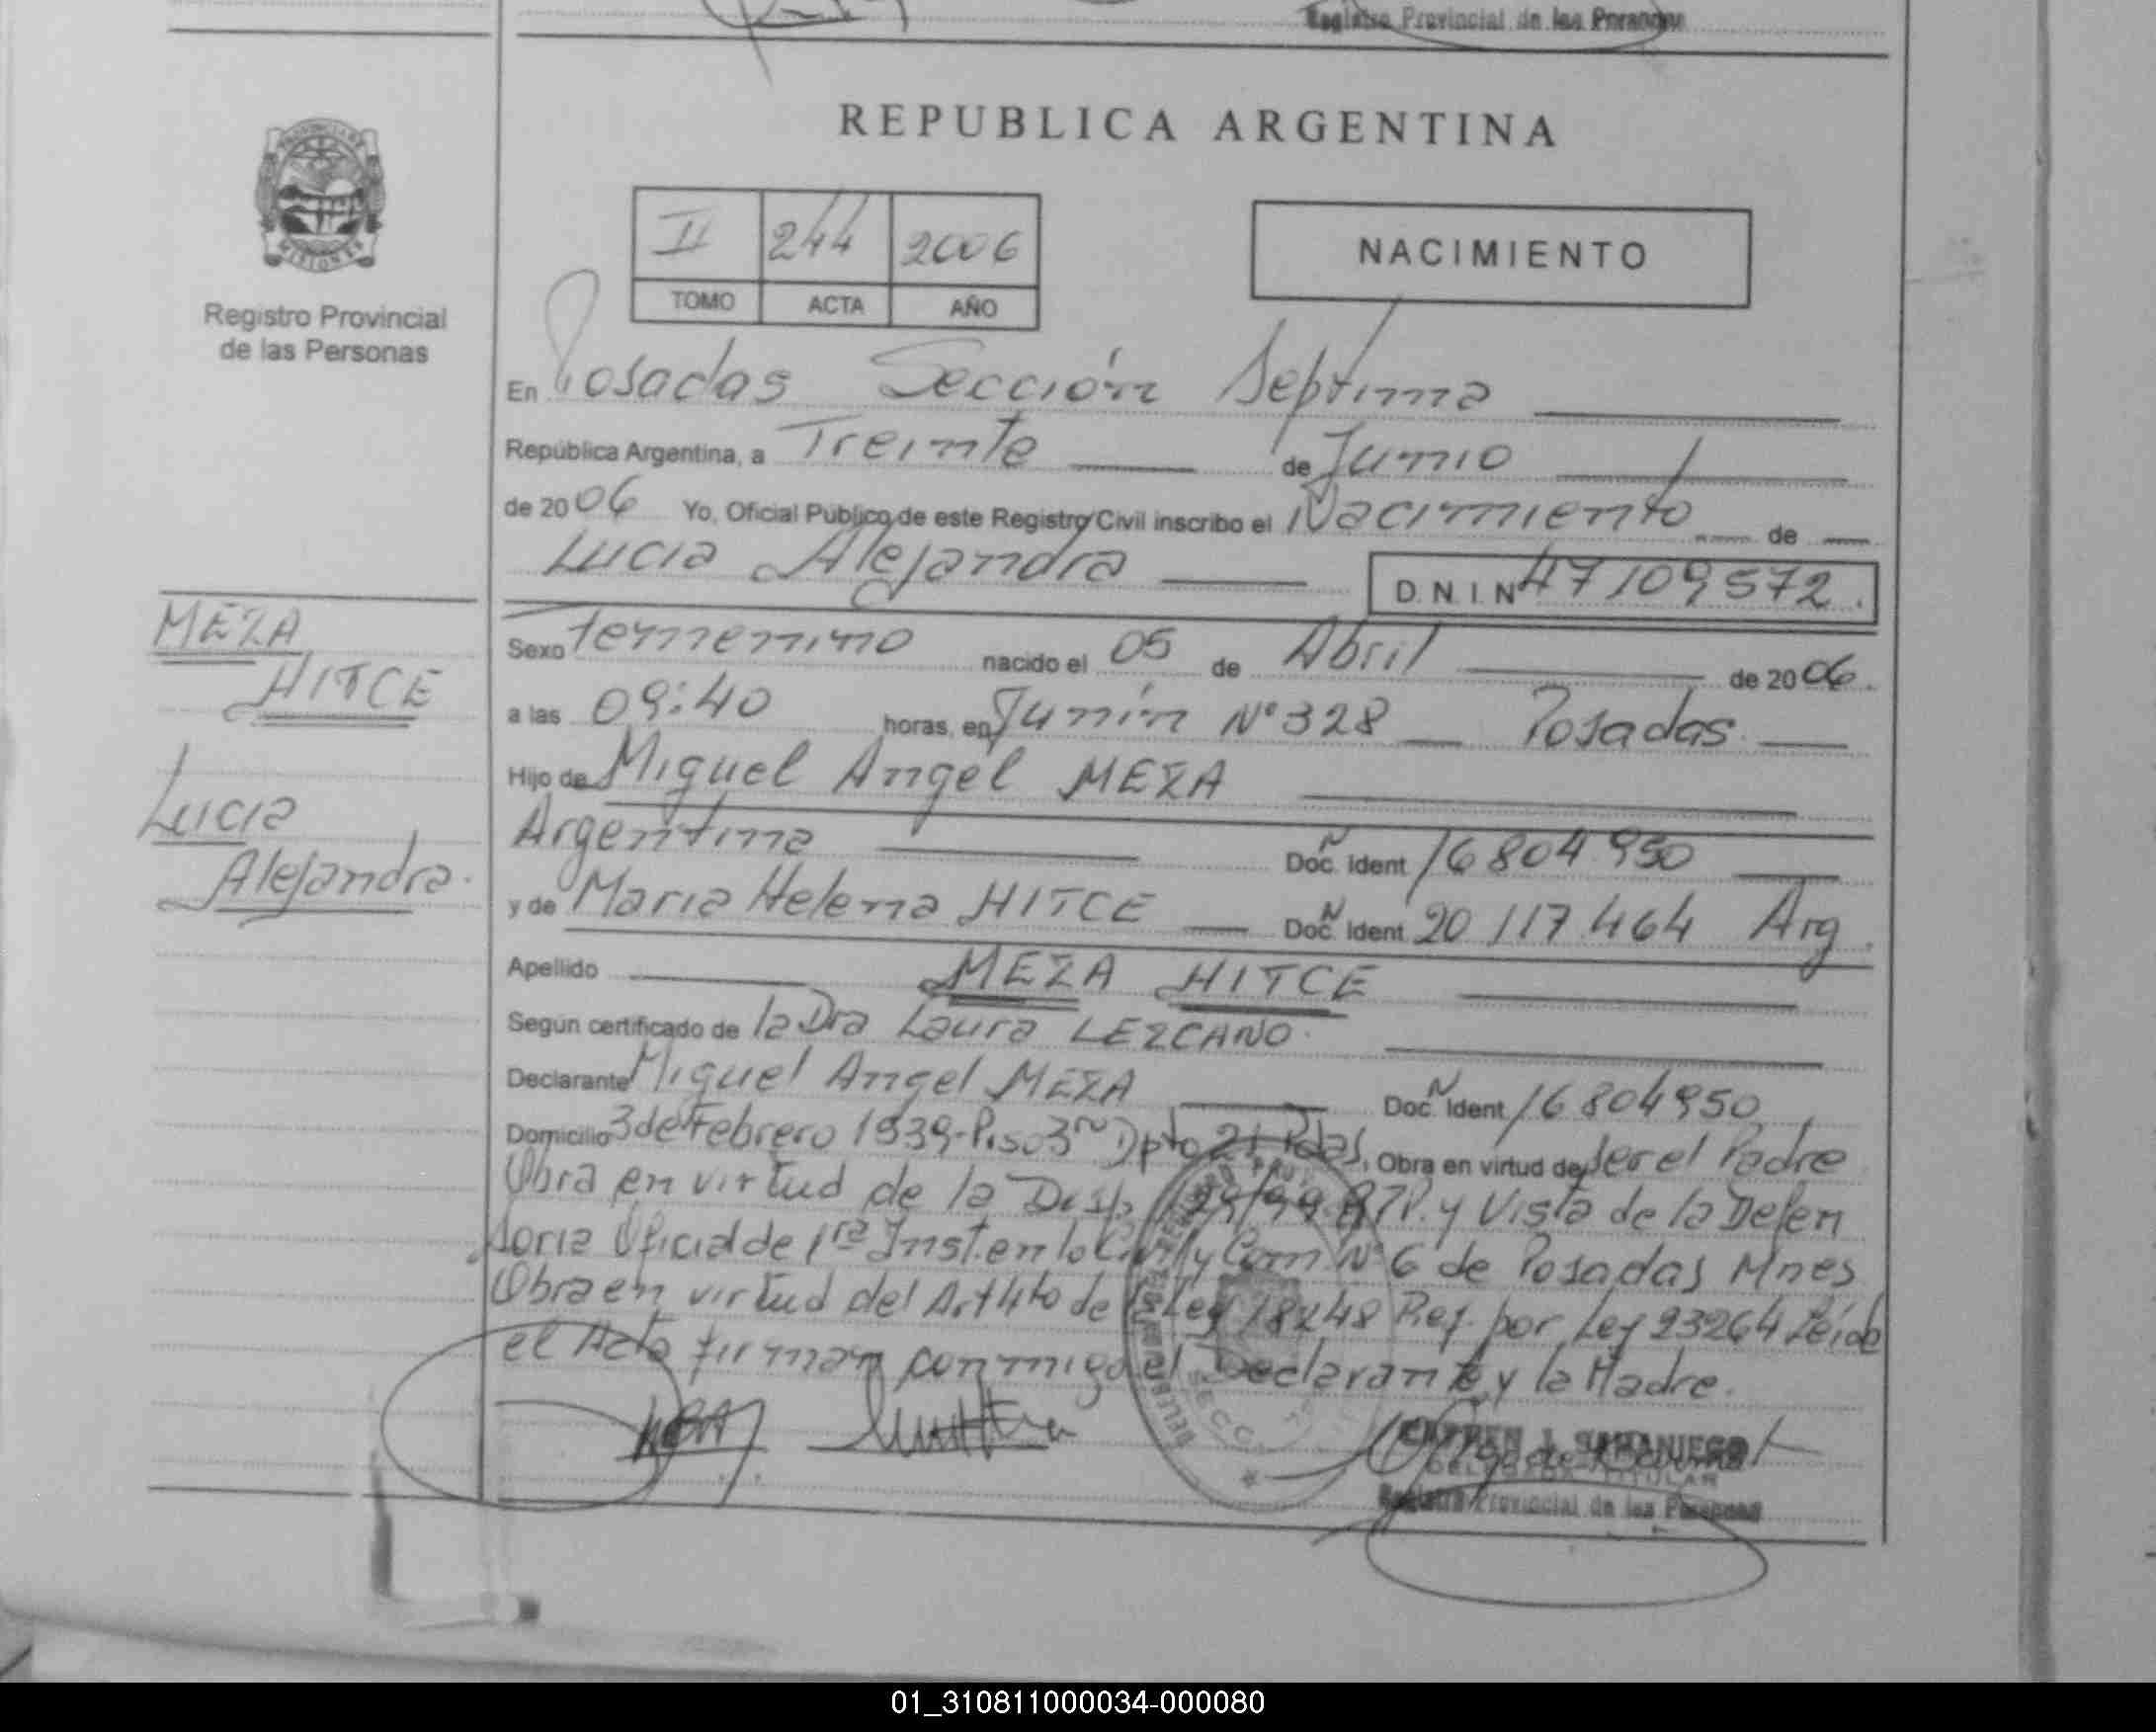 Registro Provincial de las Personas
REPUBLICA ARGENTINA
II 244 2006
TOMO ACTA AÑO
NACIMIENTO
Registro Provincial
de las Personas
En Posadas Sección Septima
República Argentina, a Treinta de Junio
de 2006 Yo, Oficial Público de este Registro Civil inscribo el Nacimiento de
Lucia Alejandra D.N.I. Nº 47109572.
MEZA
HITCE
Lucia
Alejandra.
Sexo femenino nacido el 05 de Abril de 2006.
a las 09:40 horas, en Junín Nº 328 Posadas
Hijo de Miguel Angel MEZA
Argentina Doc. Ident 16804950
y de Maria Helena HITCE Doc. Ident 20 117 464 Arg.
Apellido MEZA HITCE
Según certificado de la Dra Laura LEZCANO.
Declarante Miguel Angel MEZA Doc. Ident 16804950
Domicilio 3 de Febrero 1939-Piso 3ro Dpto 21 Pdas, Obra en virtud de ser el Padre
Obra en virtud de la Disp. y Vista de la Defen
soria Oficial de 1ra Inst. en lo Civil y Com Nº 6 de Posadas Mnes
Obra en virtud del Art 4to de la Ley 18248 Ref. por Ley 23264 Leido
el Acta firman conmigo el Declarante y la Madre.
DELEGADA TITULAR
Registro Provincial de las Personas
01_310811000034-000080